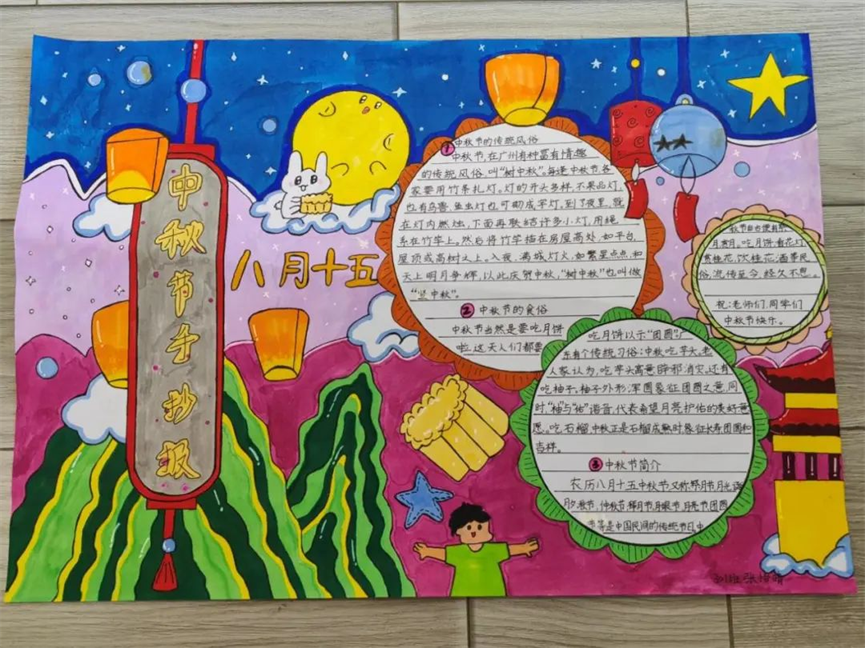 中秋节手抄报
八月十五
①中秋节的传统风俗
中秋节,在广州有种富有情趣
的传统风俗,叫“树中秋”。每逢中秋节各
家要用竹条扎灯。灯的开头多样,不
也有鸟兽、鱼虫灯也可
在灯内燃烛,下面再联结许多小灯,用绳
系在竹竿上。然后将竹竿插在房屋高处,如平台、
屋顶或高树之上。入夜,满城灯火,如繁星点点,和
天上明月争辉,以此庆贺中秋。“树中秋”也叫做
中秋”。
②中秋节的食俗
中秋节当然是要吃月饼
啦,这天人们都要
吃月饼以示“团圆”广
东有个传统习俗:中秋吃芋头,老
人家认为,吃芋头寓意辟邪消灾,还有
吃柚子。柚子外形,浑圆象征团圆之意,同
时,“柚”与“佑”谐音,代表希望月亮护佑的美好意
愿。吃石榴,中秋正是石榴成熟时象征长寿团圆和
吉祥。
③中秋节简介
农历八月十五中秋节,又称
节
等,是中国民间的传统节日。中
中秋节自古便有祭
月、赏月、吃月饼、看花灯、
赏桂花、饮桂花酒等民
俗,流传至今,经久不息。
祝:老师们、同学们
中秋节快乐。